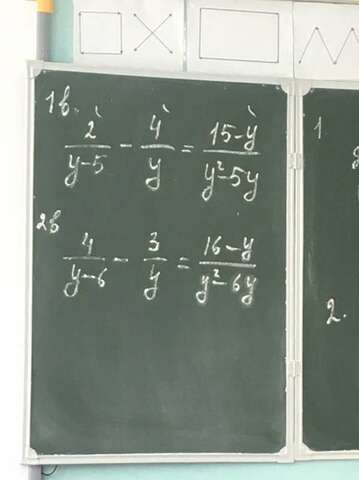 1в.
2/(y-5) - 4/y = (15-y)/(y²-5y)
2в
4/(y-6) - 3/y = (16-y)/(y²-6y)
1
2.